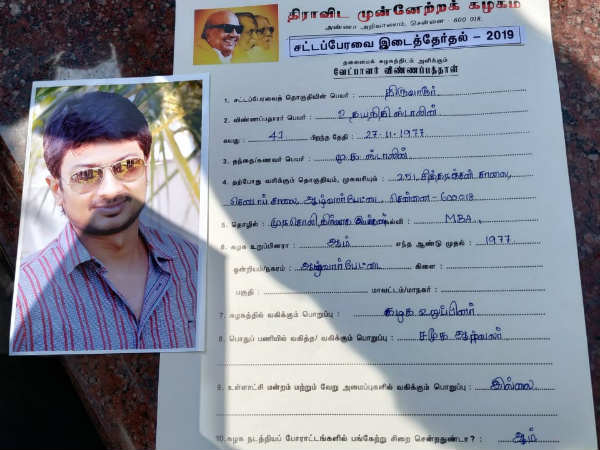 திராவிட முன்னேற்றக் கழகம்
அண்ணா அறிவாலயம், சென்னை - 600 018.
சட்டப்பேரவை இடைத்தேர்தல் - 2019
தலைமைக் கழகத்திடம் அளிக்கும்
வேட்பாளர் விண்ணப்பத்தாள்
1. சட்டப்பேரவைத் தொகுதியின் பெயர் : திருவாரூர்
2. விண்ணப்பதாரர் பெயர் : உதயநிதி ஸ்டாலின்
வயது : 41 பிறந்த தேதி : 27-11-1977
3. தந்தை/கணவர் பெயர் : மு.க ஸ்டாலின்
4. தற்போது வசிக்கும் தொகுதியும், முகவரியும் : 25/
சாலை, ஆழ்வார்பேட்டை, சென்னை - 600018
5. தொழில் : முரசொலி, நிர்வாக இயக்குனர் கல்வி : MBA.,
6. கழக உறுப்பினரா : ஆம் எந்த ஆண்டு முதல் : 1977
ஒன்றியம்/நகரம் : ஆழ்வார்பேட்டை கிளை :
பகுதி : மாவட்டம்/மாநகர் :
7. கழகத்தில் வகிக்கும் பொறுப்பு : கழக உறுப்பினர்
8. பொதுப் பணியில் வகித்த/ வகிக்கும் பொறுப்பு : சமூக ஆர்வலர்
9. உள்ளாட்சி மன்றம் மற்றும் வேறு அமைப்புகளில் வகிக்கும் பொறுப்பு : இல்லை
10. கழக நடத்திய போராட்டங்களில் பங்கேற்று சிறை சென்றதுண்டா? : ஆம்